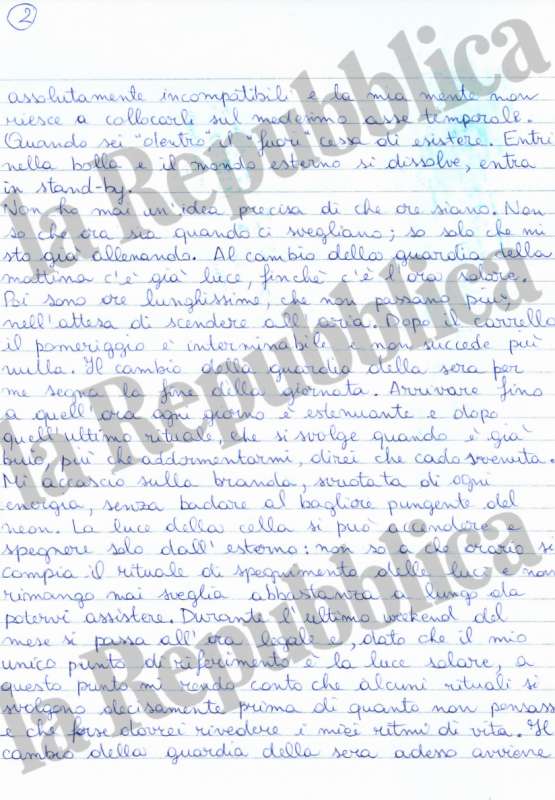 2
la Repubblica
assolutamente incompatibili e la mia mente non
riesce a collocarli sul medesimo asse temporale.
Quando sei "dentro" il "fuori" cessa di esistere. Entri
nella bolla e il mondo esterno si dissolve, entra
in stand-by.
Non ho mai un'idea precisa di che ore siano. Non
so che ora sia quando ci svegliano; so solo che mi
sto già allenando. Al cambio della guardia della
mattina c'è già luce, finché c'è l'ora solare.
Poi sono ore lunghissime, che non passano più,
nell'attesa di scendere all'aria. Dopo il carrello
il pomeriggio è interminabile e non succede più
nulla. Il cambio della guardia della sera per
me segna la fine della giornata. Arrivare fino
a quell'ora ogni giorno è estenuante e dopo
quell'ultimo rituale, che si svolge quando è già
buio, più che addormentarmi, direi che cado svenuta.
Mi accascio sulla branda, svuotata di ogni
energia, senza badare al bagliore pungente del
neon. La luce della cella si può accendere e
spegnere solo dall'esterno: non so a che orario si
compia il rituale di spegnimento delle luci e non
rimango mai sveglia abbastanza a lungo da
potervi assistere. Durante l'ultimo weekend del
mese si passa all'ora legale e, dato che il mio
unico punto di riferimento è la luce solare, a
questo punto mi rendo conto che alcuni rituali si
svolgono decisamente prima di quanto non pensass
e che forse dovrei rivedere i miei ritmi di vita. Il
cambio della guardia della sera adesso avviene
la Repubblica
la Repubblica